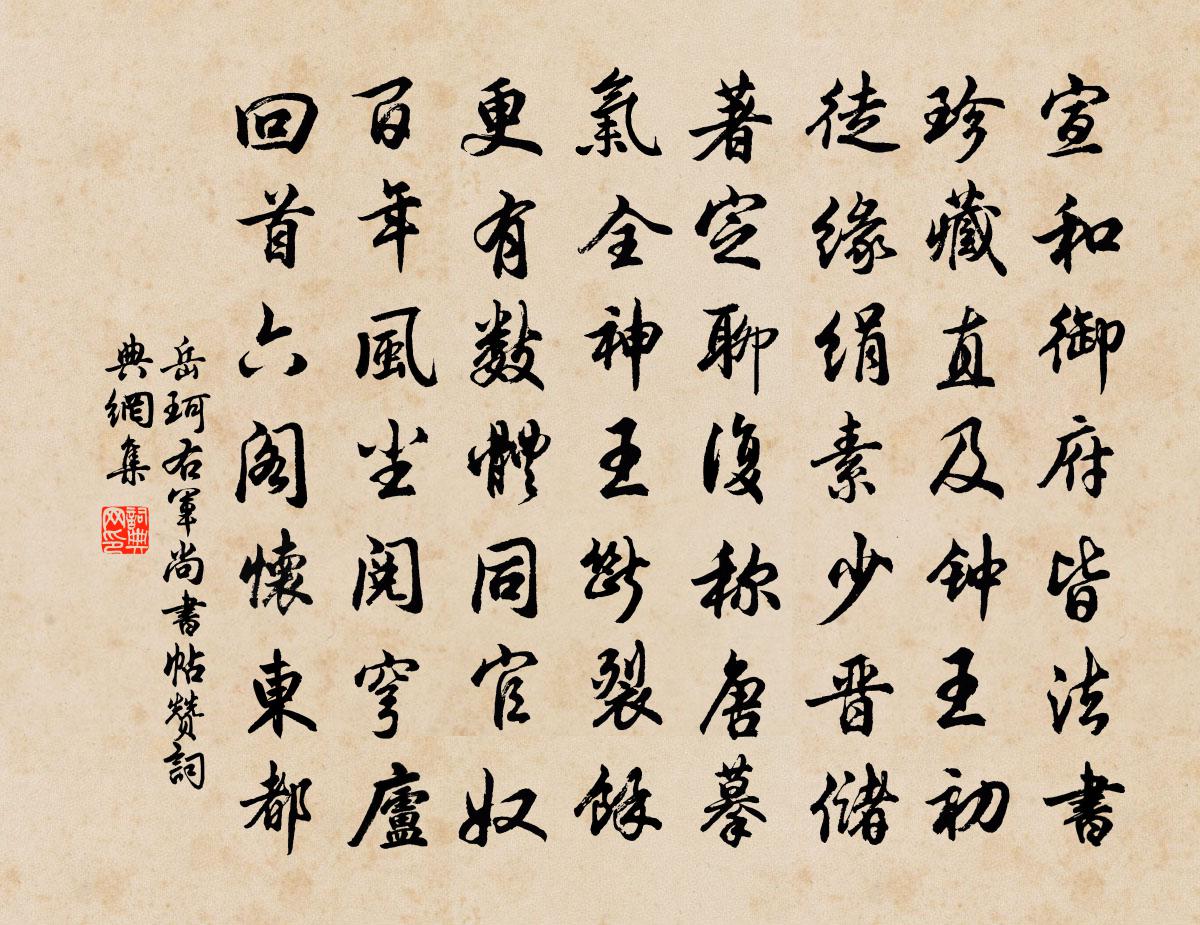 宣和御府皆法書
珍藏直及钟王初
徒緣絹素少晋儲
著定聊復称唐摹
氣全神王斷裂餘
更有數體同官奴
百年風尘閱穹廬
回首六閣懷東都
岳珂右軍尚書帖贊詞
典網集
詞典
网印